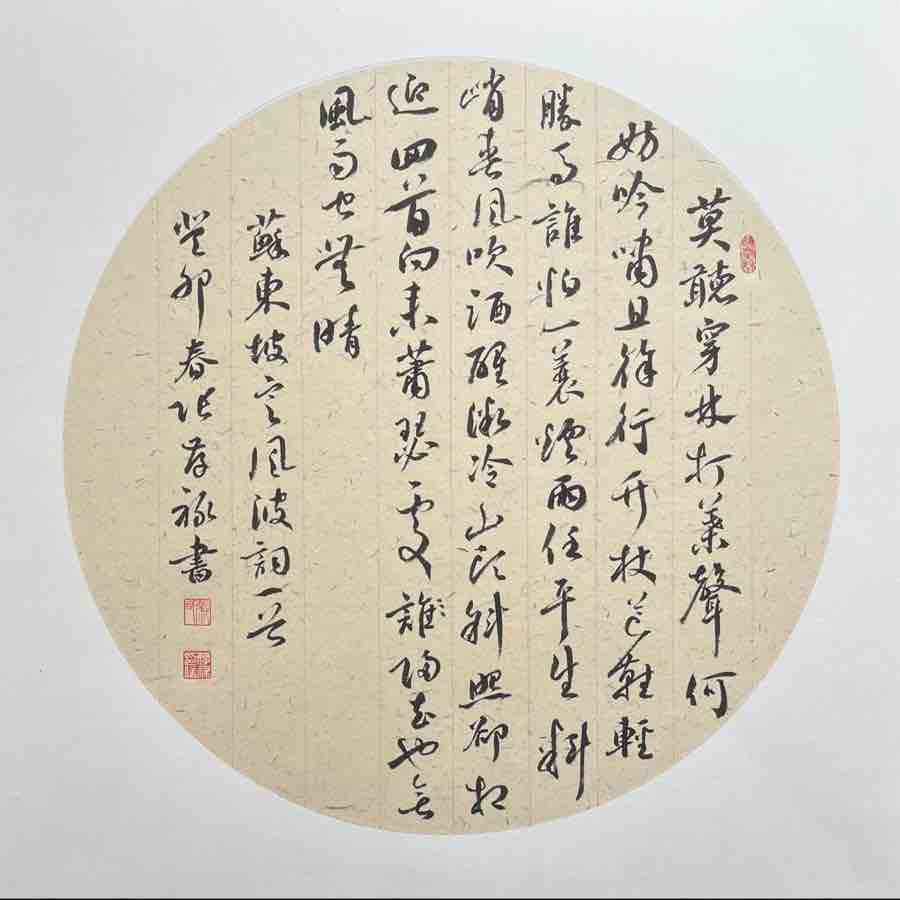 莫聽穿林打葉聲何
妨吟嘯且徐行竹杖芒鞋輕
勝馬誰怕一蓑煙雨任平生料
峭春風吹酒醒微冷山頭斜照卻相
迎回首向來蕭瑟處歸去也無
風雨也無晴
蘇東坡定風波詞一首
癸卯春張存祿書